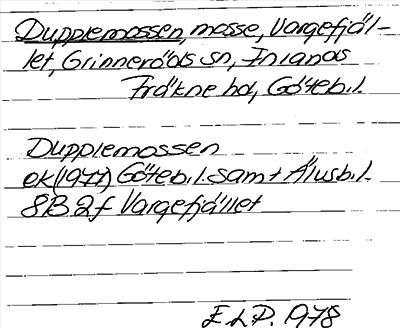 Dupplemossen, mosse, Vargefjäl-
let, Grinneröds sn, Inlands
Fräkne hd, Göteb.l.
Dupplemossen
ek(1977) Göteb.l. samt Älvsb.l.
8B 2f Vargefjället
E L P. 1978